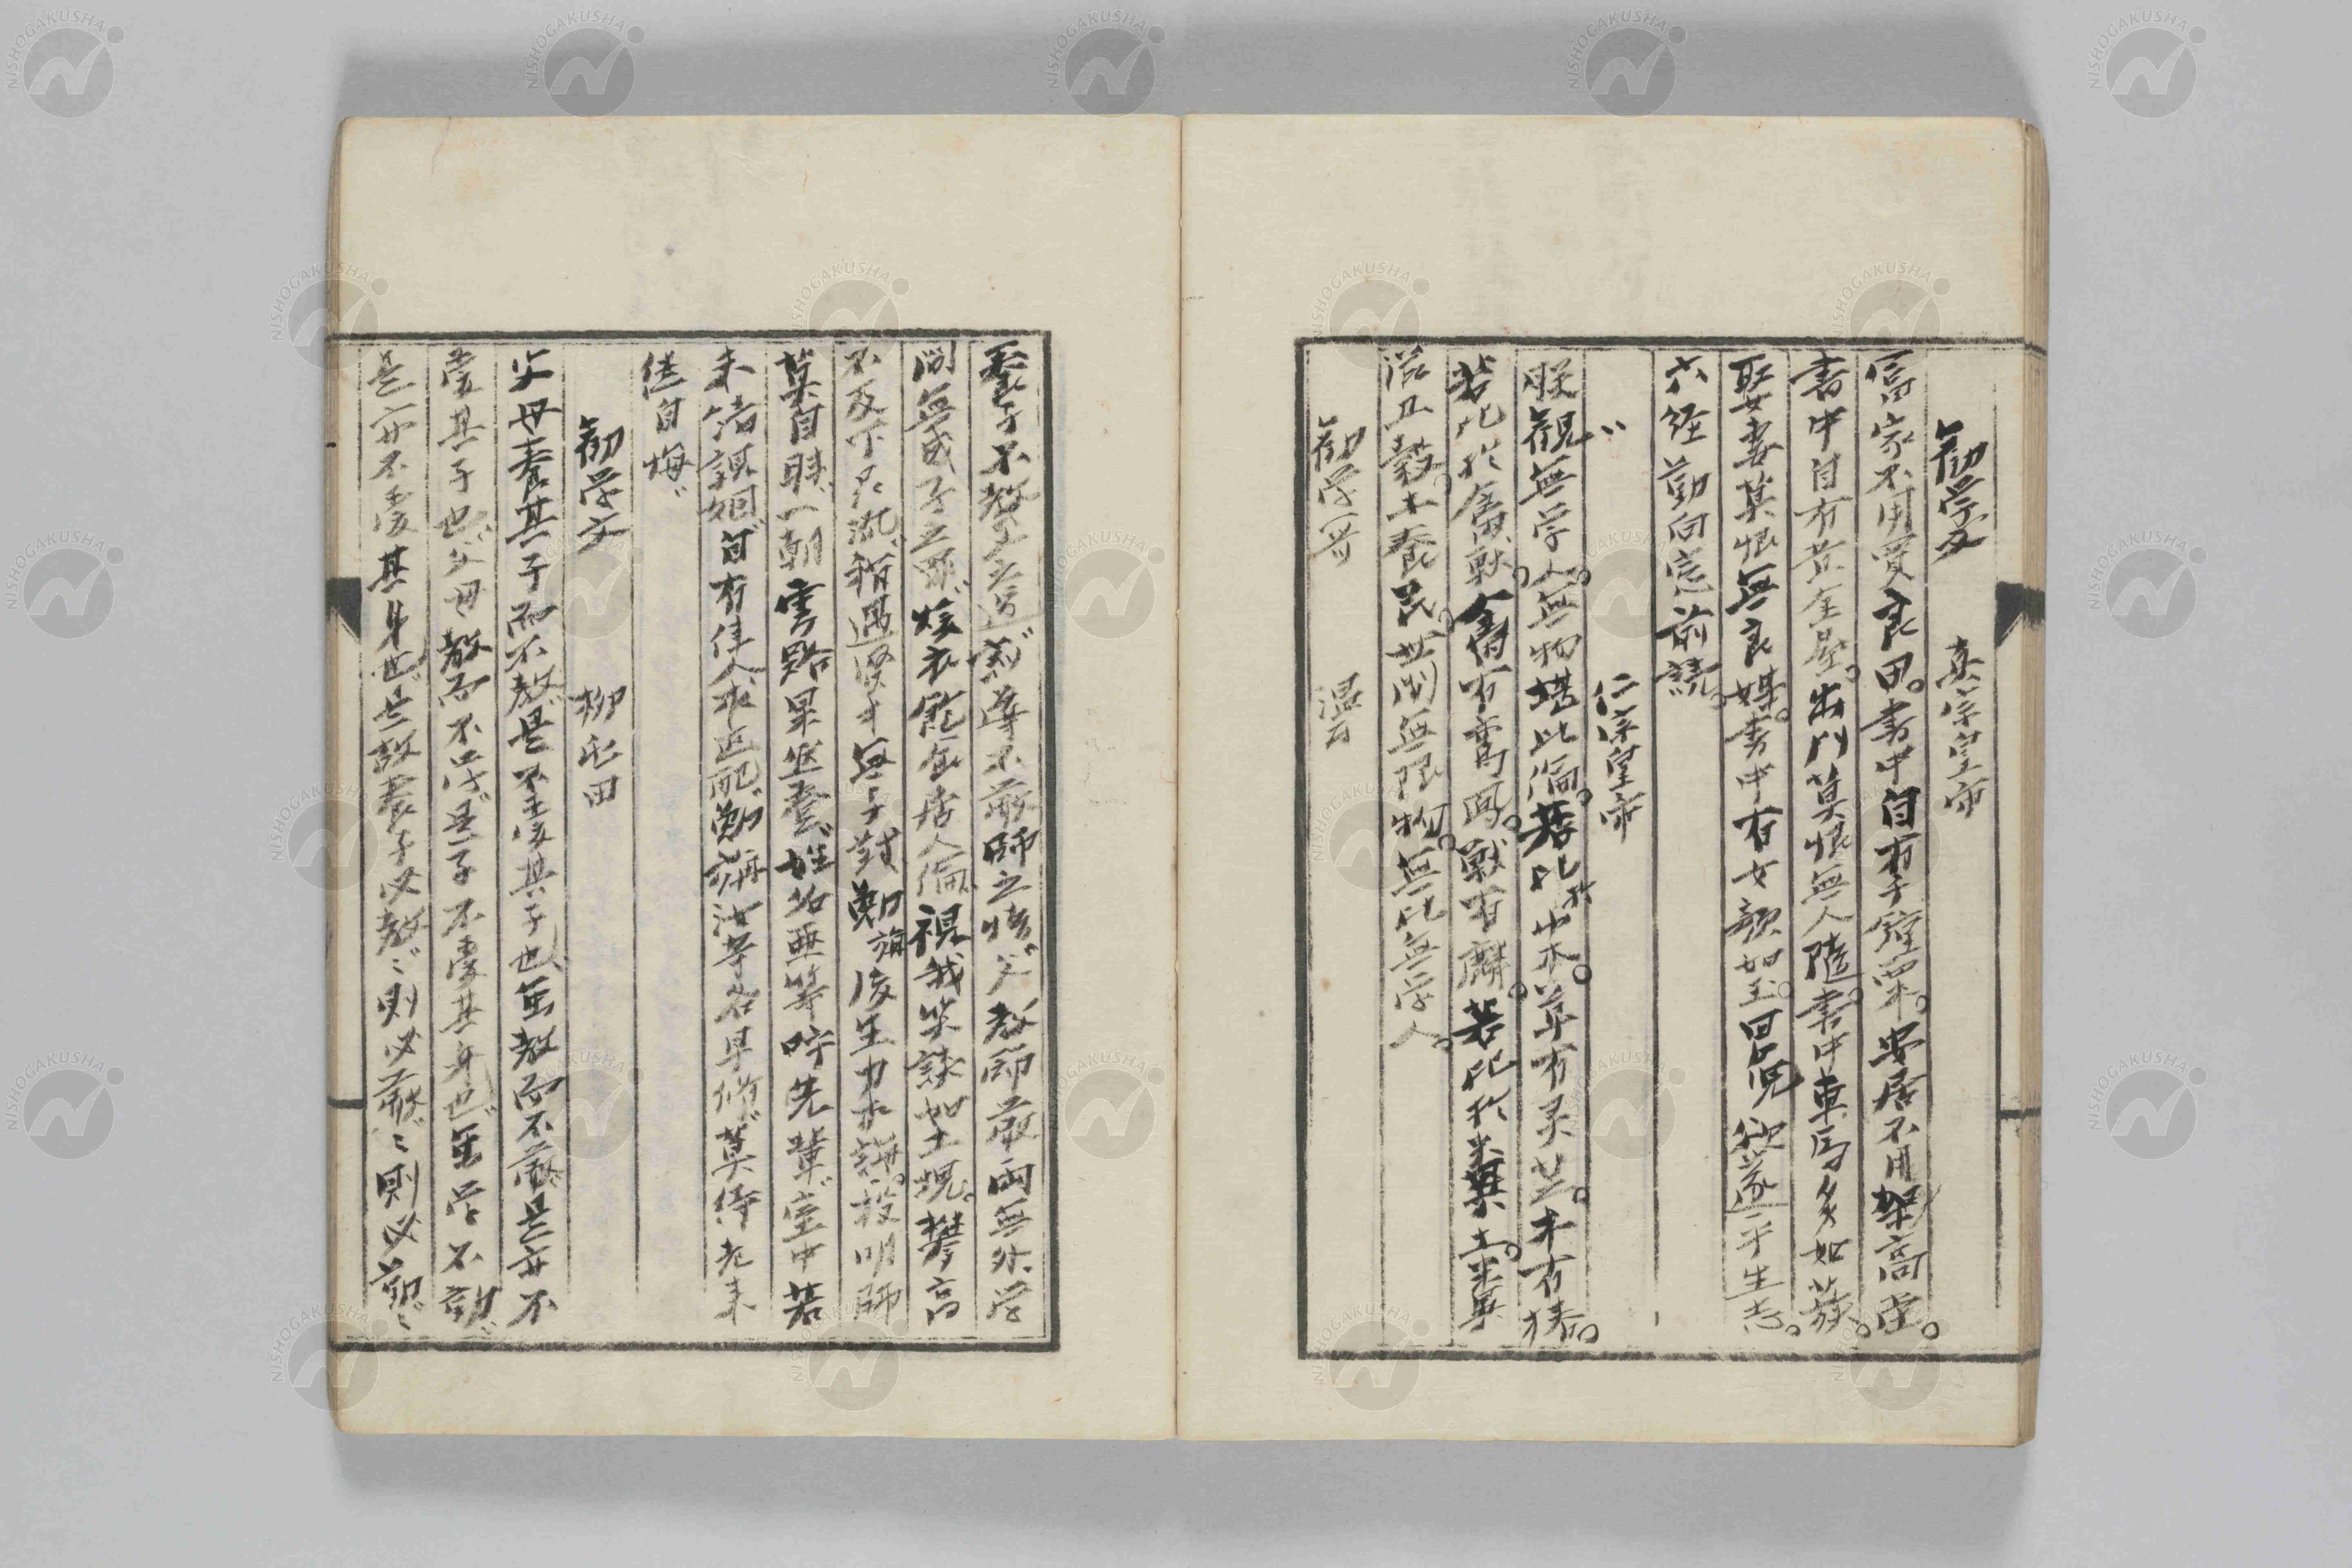 勧学文 真宗皇帝
富家不用買良田。書中自有千鍾粟。安居不用架高堂。
書中自有黄金屋。出門莫恨無人随。書中車馬多如簇。
娶妻莫恨無良媒。書中有女顔如玉。男児欲遂平生志。
六経勤向窓前読。
〃 仁宗皇帝
朕観無学人。無物堪比倫。若比於草木。草有灵芝。木有椿。
若比於禽獣。禽有鸞鳳。獣有麟。若比於糞土。糞
滋五穀。土養民。世間無限物。無比無学人。
勧学哥 温公
養子不教父之過。訓導不厳師之惰。父教師厳両無外。学
問無成子之罪。煖衣飽食居人倫。視我笑談如土塊。攀高
不及下品流。稍遇賢才無与対。勉旃後生力求誨。投明師
莫自昧。一朝雲路果然登。姓名亜等呼先輩。室中若
未結親姻。自有佳人求匹配。勉旃汝等各早脩。莫待老来
徒自悔。
勧学文 柳屯田
父母養其子而不教。是不愛其子也。雖教而不厳。是亦不
愛其子也。父母教而不学。是子不愛其身也。雖学不勤。
是亦不愛其身也。是故養子必教。〻則必厳。〻則必勤。〻
NISHOGAKUSHA